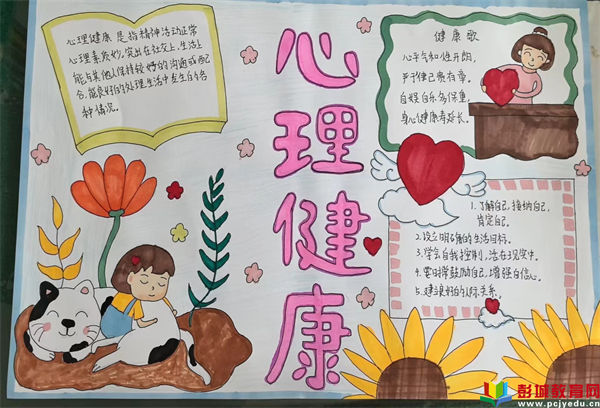 心理健康是指精神活动正常
心理素质好。突出在社交上,生活上
能与其他人保持较好的沟通或配
合,能良好的处理生活中发生的各
种情况。
心理健康
健康歌
心平气和性开朗,
严于律己喜有章。
自娱自乐多保重,
身心健康寿延长。
1.了解自己,接纳自己,
肯定自己。
2.设立明确的生活目标。
3.学会自我控制,活在现实中。
4.要时常鼓励自己,增强自信心。
5.建良好的人际关系。
彭城教育网
www.pcjyedu.cn